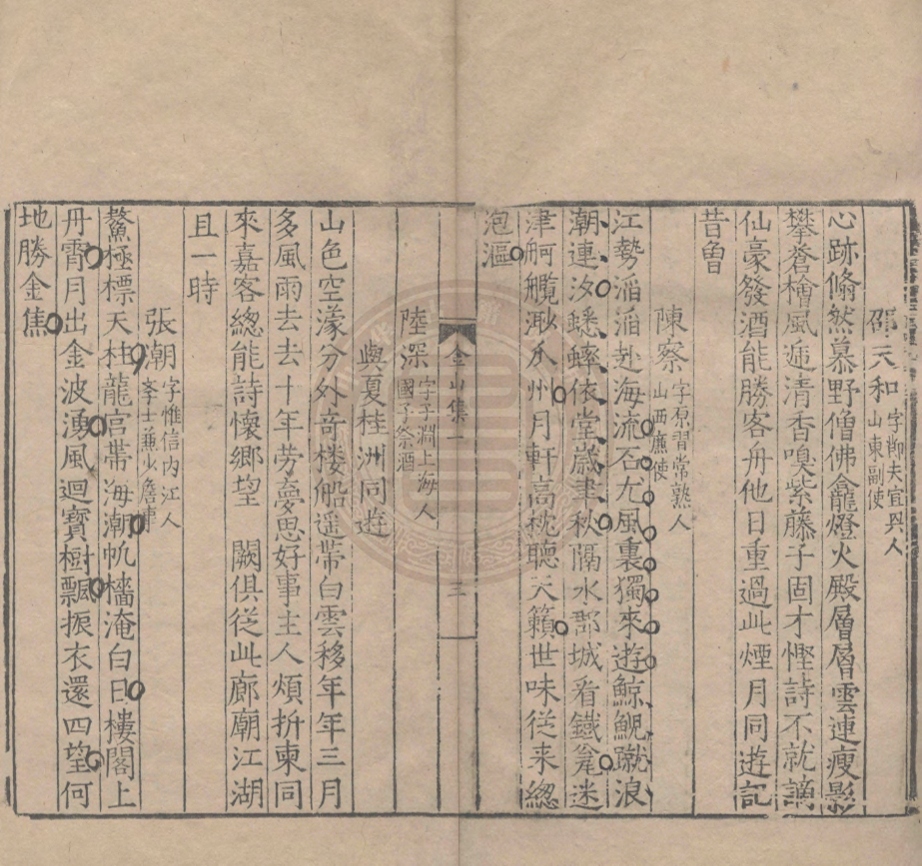 邵天和字節夫宜興人山東副使
心跡翛然慕野僧佛龕燈火殿層層雲連瘦影
攀蒼檜風逓清香嗅紫藤子固才慳詩不就謫
仙豪發酒能勝客舟他日重過此煙月同遊記
昔曾
陳察字原習常熟人山西廉使
江勢滔滔赴海流石尤風裏獨來遊鯨鯢蹴浪
潮連汐蟋蟀依堂歲聿秋隔水郡城看鐵瓮迷
津舸艦渺瓜州月軒高枕聽天籟世味從来總
泡漚
金山集一 三
陸深字子淵上海人國子祭酒
與夏桂洲同遊
山色空濛分外奇樓船遥帶白雲移年年三月
多風雨去去十年勞夢思好事主人煩折柬同
來嘉客總能詩懷鄉望 闕俱從此廊廟江湖
且一時
張潮字惟信内江人學士兼少詹事
鰲極標天柱龍宫帶海潮帆檣淹白日樓閣上
丹霄月出金波湧風迴寶樹飄振衣還四望何
地勝金焦